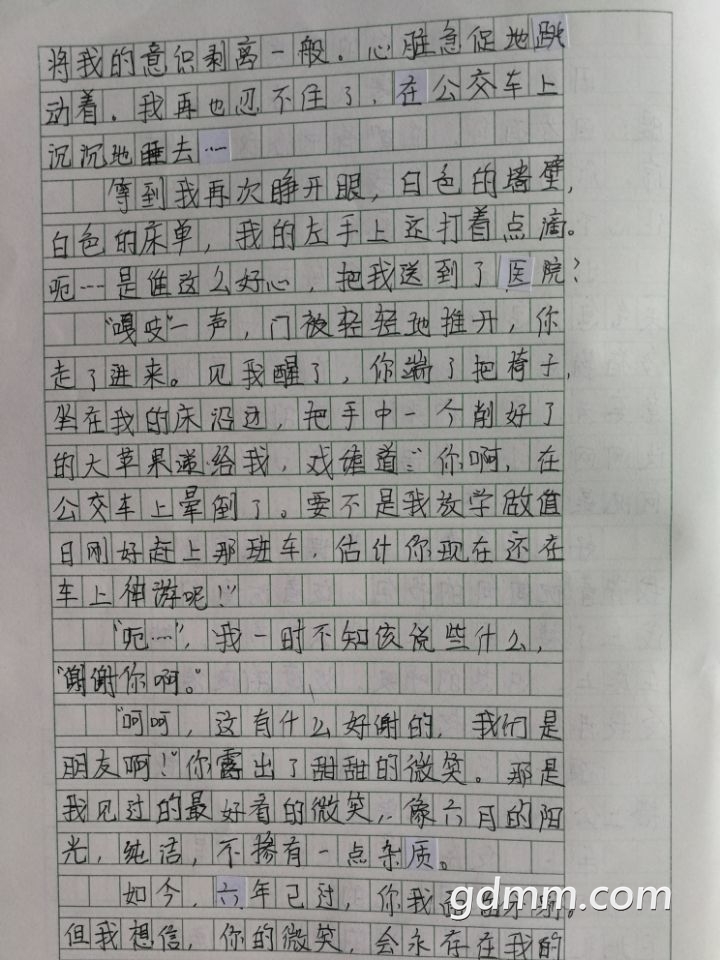 将我的意识剥离一般。心脏急促地跳
动着。我再也忍不住了，在公交车上
沉沉地睡去…
等到我再次睁开眼，白色的墙壁，
白色的床单，我的左手上还打着点滴。
呃…是谁这么好心，把我送到了医院？
“嘎吱”一声，门被轻轻地推开，你
走了进来。见我醒了，你端了把椅子，
坐在我的床沿边，把手中一个削好了
的大苹果递给我，戏谑道：“你啊，在
公交车上晕倒了。要不是我放学做值
日刚好赶上那班车，估计你现在还在
车上神游呢！”
“呃…”，我一时不知该说些什么，
“谢谢你啊。”
“呵呵，这有什么好谢的，我们是
朋友啊！”你露出了甜甜的微笑。那是
我见过的最好看的微笑，像六月的阳
光，纯洁，不掺有一点杂质。
如今，六年已过，你我
gdmm.com
但我想信，你的微笑，会永存在我的